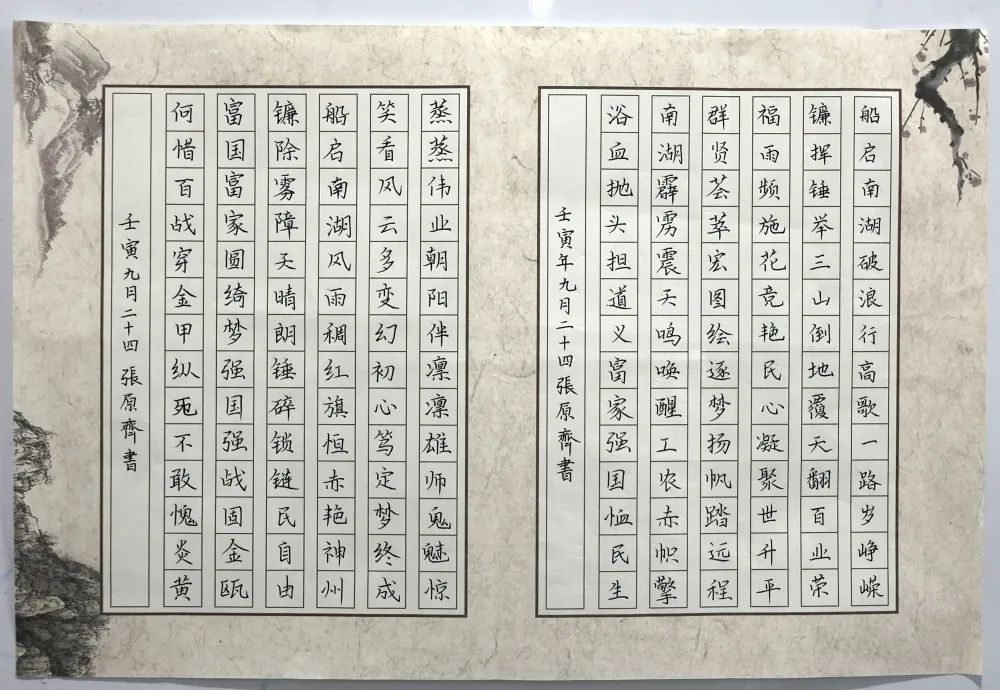 船启南湖破浪行高歌一路岁峥嵘
镰挥锤举三山倒地覆天翻百业荣
福雨频施花竞艳民心凝聚世升平
群贤荟萃宏图绘逐梦扬帆踏远程
南湖霹雳震天鸣唤醒工农赤帜擎
浴血抛头担道义富家强国恤民生
壬寅年九月二十四張原齊書
蒸蒸伟业朝阳伴凛凛雄师鬼魅惊
笑看风云多变幻初心笃定梦终成
船启南湖风雨稠红旗恒赤艳神州
镰除雾障天晴朗锤碎锁链民自由
富国富家圆绮梦强国强战固金瓯
何惜百战穿金甲纵死不敢愧炎黄
壬寅九月二十四張原齊書